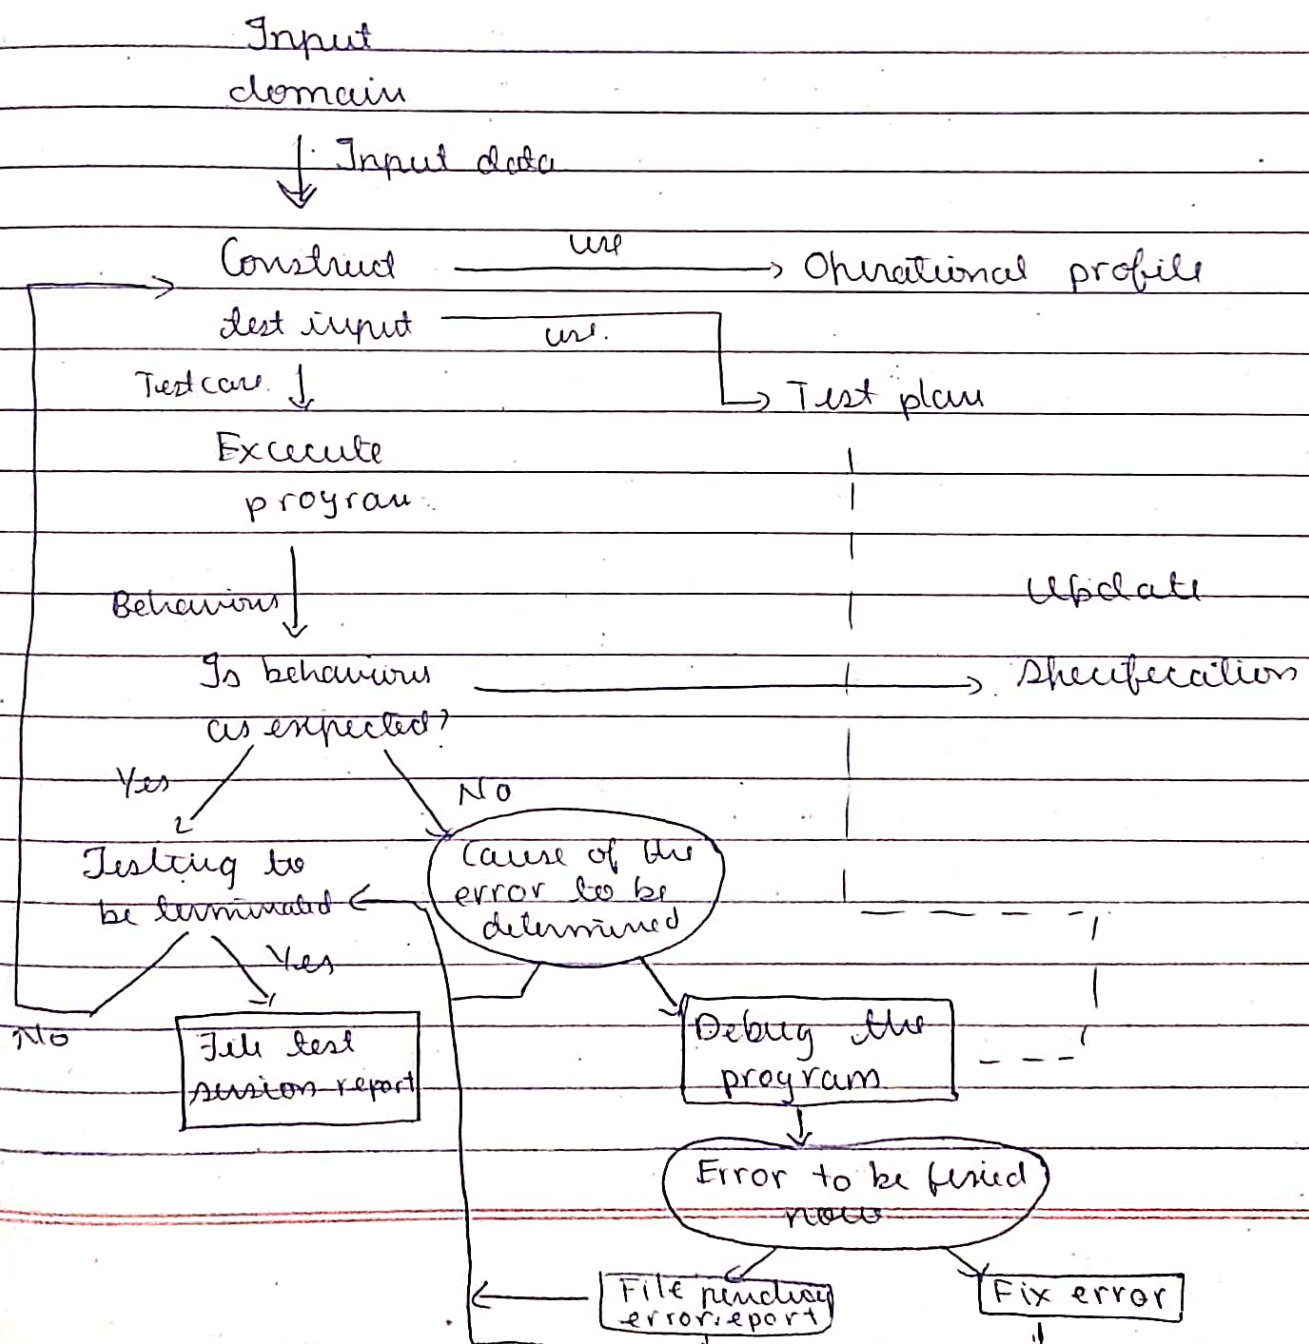 Input
domain
Input data
Construct
use
Operational profile
test input
use.
Test case
Test plan
Excecute
program
Behaviours
Update
Is behaviours
Specification
as expected?
Yes
No
Testing to
be terminated
Cause of the
error to be
determined
Yes
No
File test
session report
Debug the
program
Error to be fixed
now
File pending
error report
Fix error